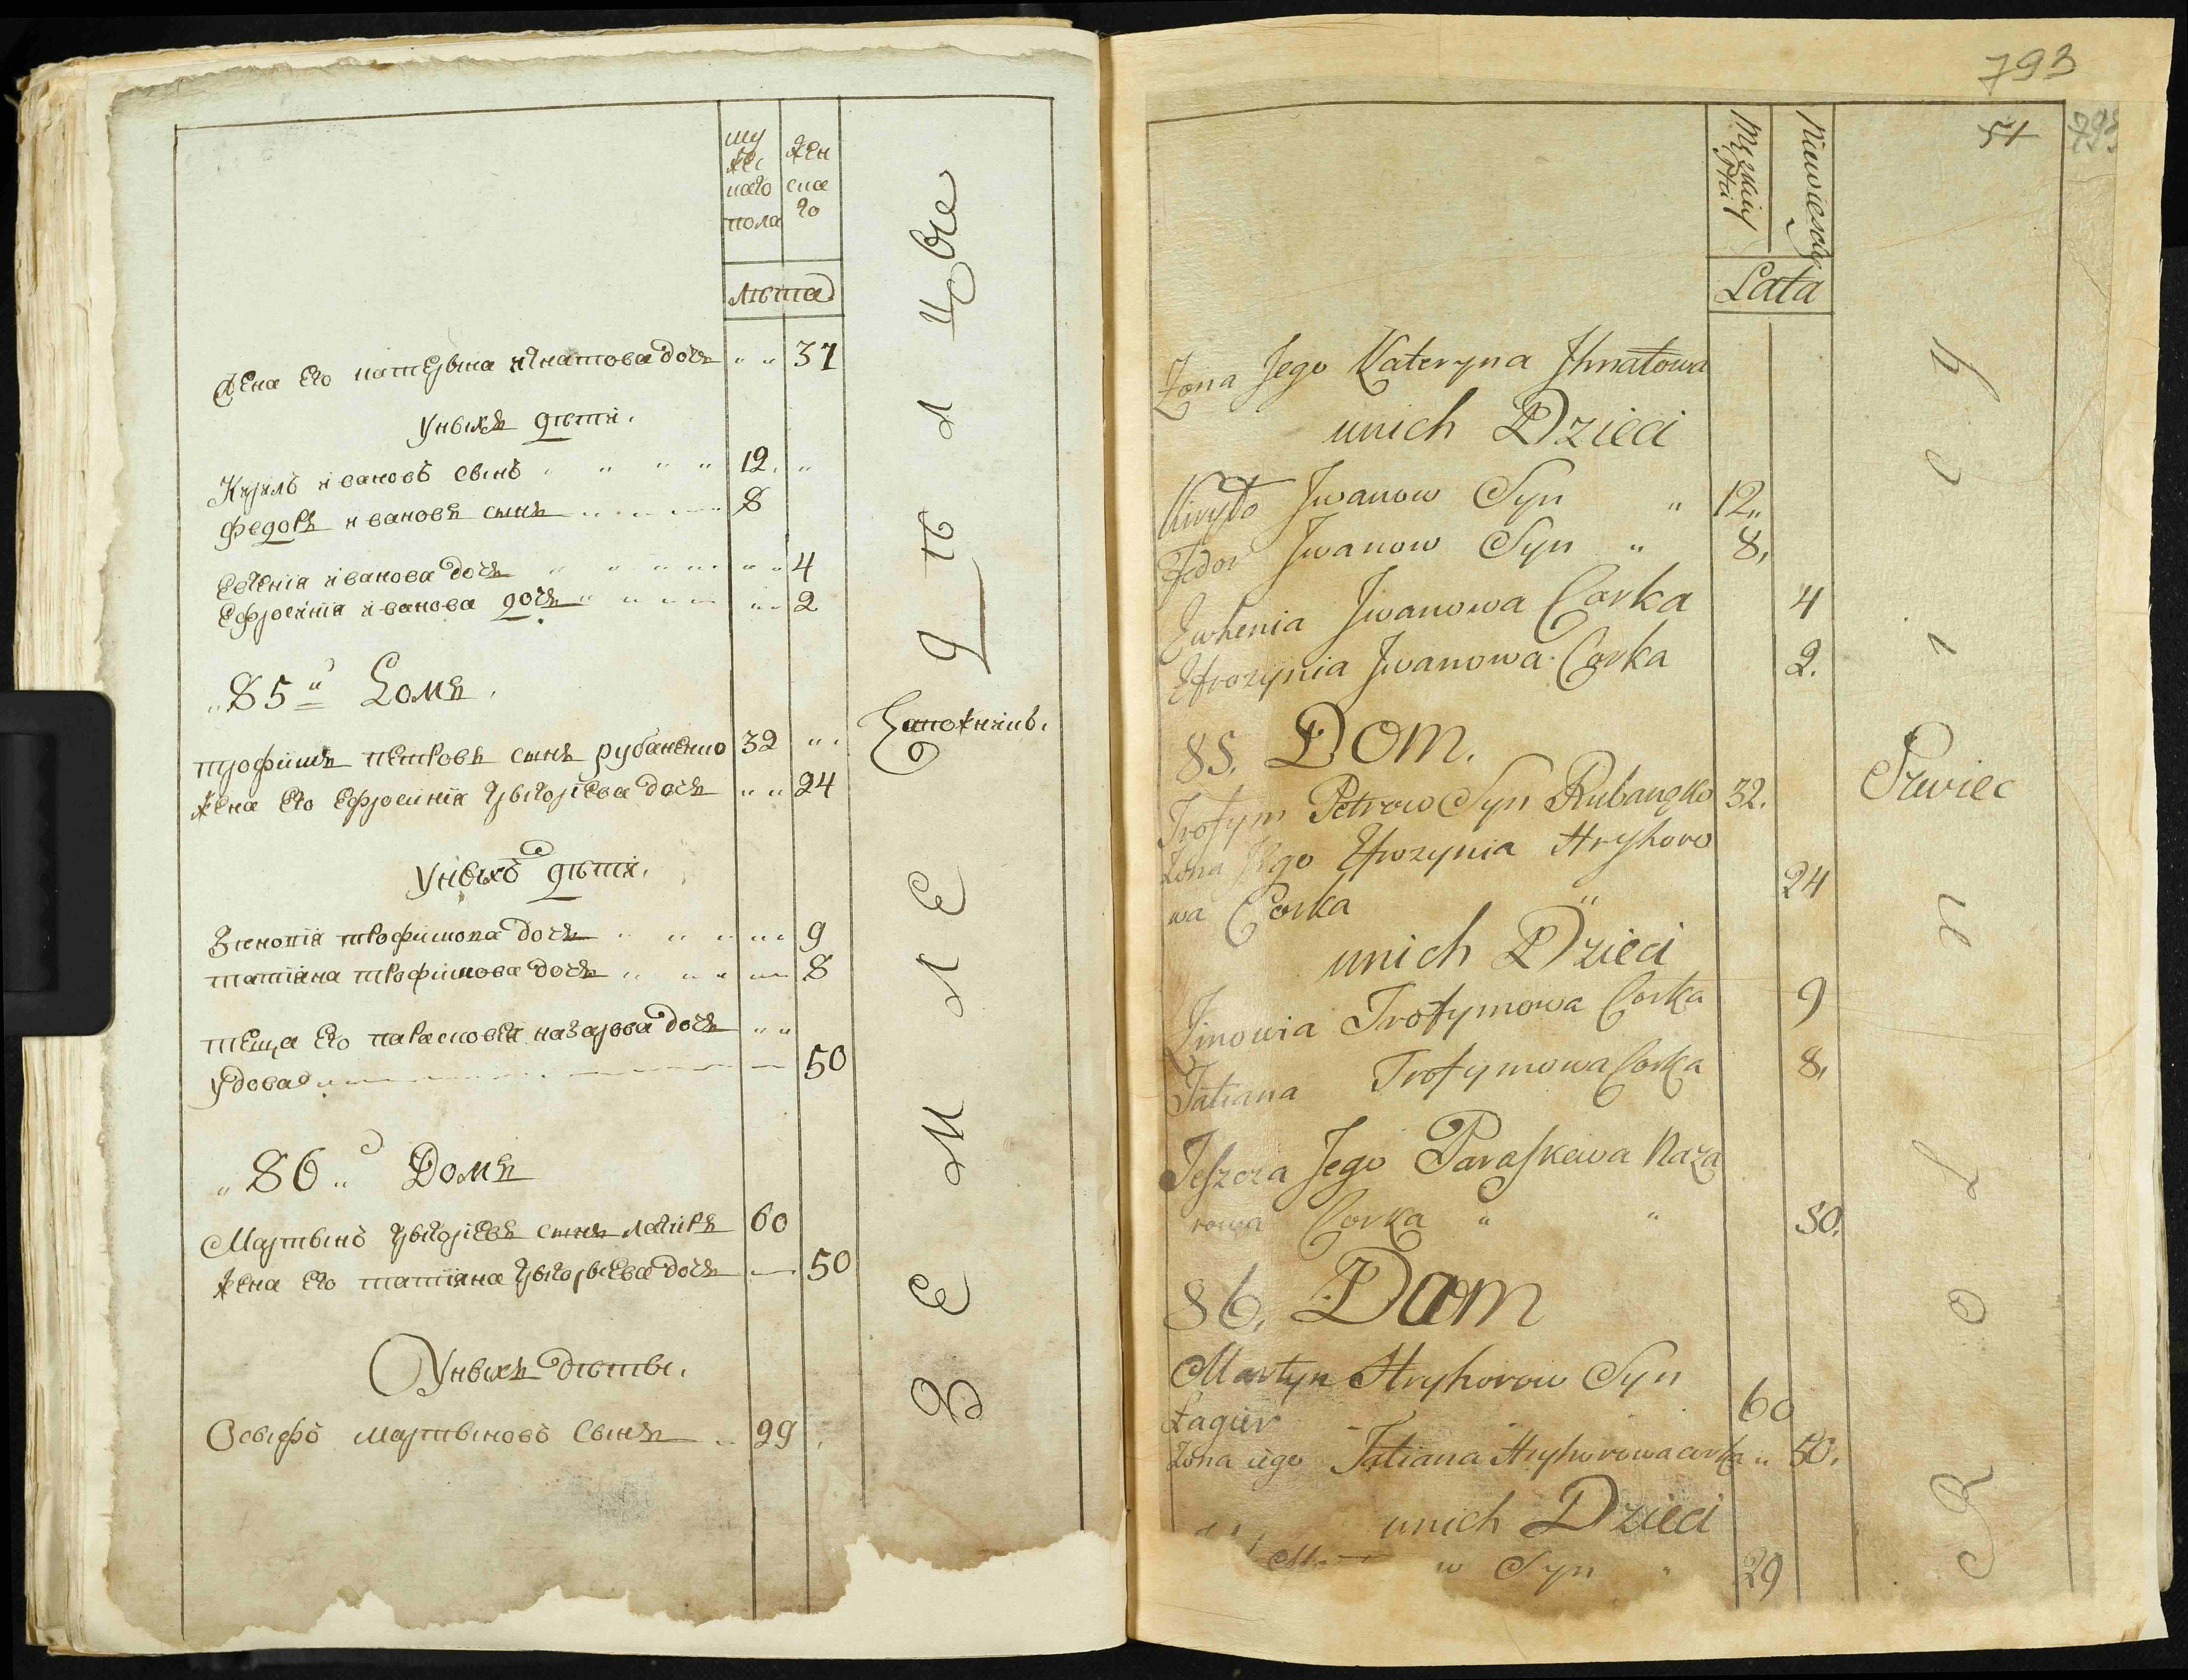 му
жес
каго
пола
жен
ска
го
лѣта
Жена его катерына игнатова дочь " " 37
У ныхъ дѣти.
Кирилъ ивановъ сынъ " " " " 12. "
Федоръ ивановъ сынъ 8
Евгенія иванова дочь " " " " 4
Ефросинія иванова дочь " " " 2
"85" Домъ.
трофимъ петровъ сынъ рубаненко 32 " "
Сапожникъ.
жена его Ефросинія грыгоріева дочь " " 24
У ныхъ дѣти.
Зѣновія трофимова дочь " " " " 9
татіяна трофимова дочь " " " 8
теща его парасковія назарова дочь " "
удова 50
"86" Домъ
Мартынъ грыгоріевъ сынъ лагиръ 60
жена его татіяна грыгорьева дочь 50
У ныхъ дѣты.
Осыфъ Мартыновъ сынъ 29
Земледѣлцы
793
51
793
Męzkiey Płci
Niewieściey
Lata
Zona Jego Kateryna Ihnatowa
unich Dzieci
Kiryło Iwanow Syn " 12"
Fedor Iwanow Syn " 8,
Ewhenia Iwanowa Corka 4
Efrozynia Iwanowa Corka 2.
85. Dom.
Trofym Petrow Syn Rubanęko 32.
Szwiec
Zona Jego Efrozynia Hryhoro
wa Corka " 24
unich Dzieci
Zinowia Trofymowa Corka 9
Tatiana Trofymowa Corka 8,
Teszcza Jego Paraskewa Naza
rowa Corka " " 50.
86, Dom
Martyn Hryhorow Syn
Łagier 60
Zona iego Tatiana Hryhorowa corka " 50.
unich Dzieci
w Syn " 29
Rolnicy